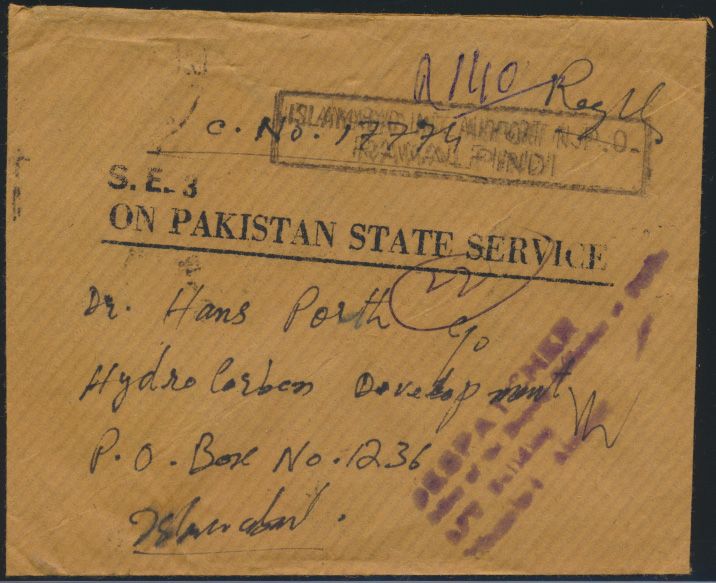 R 140 Regd
ISLAMABAD INT. AIRPORT N.P.O.
RAWALPINDI
C. No. 17774
S.E.3
ON PAKISTAN STATE SERVICE
22
Dr. Hans Porth
c/o
Hydro Carbon Development
P.O. Box No. 1236
Islamabad.
DESPATCHER